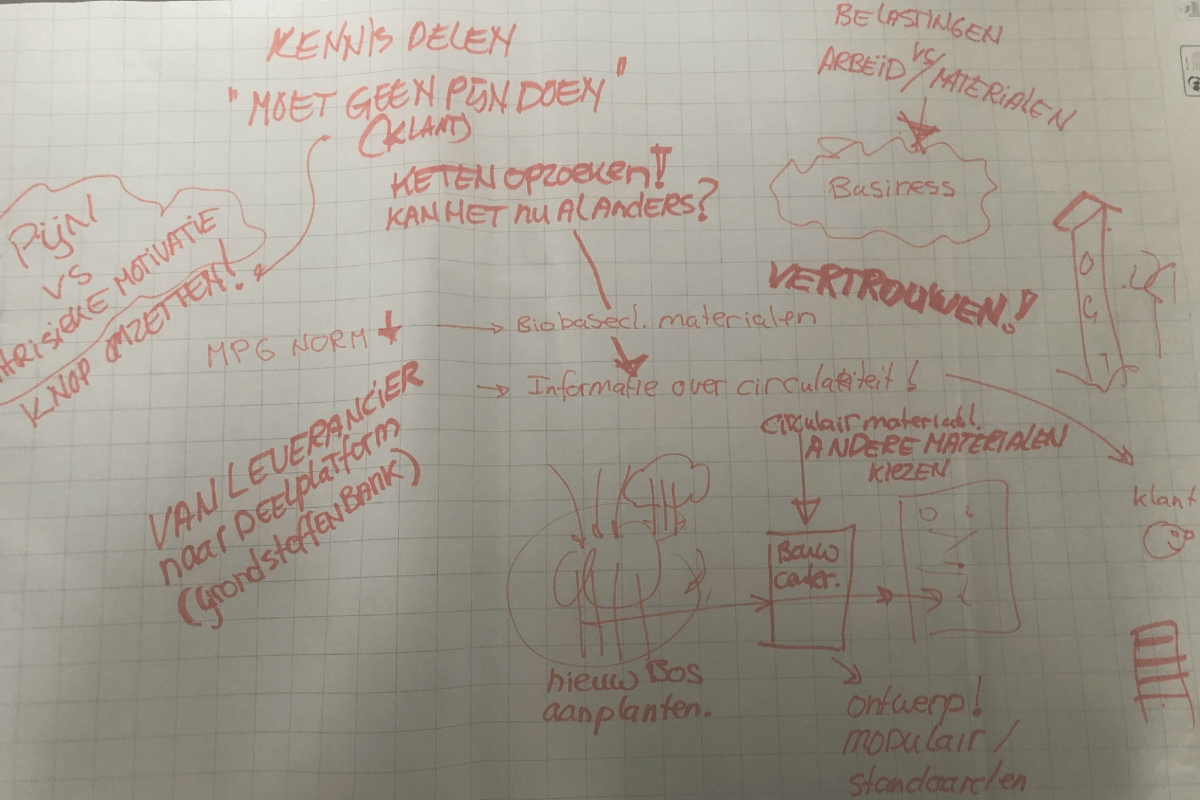 KENNIS DELEN
"MOET GEEN PIJN DOEN"
(KLANT)
KETEN OPZOEKEN!!
KAN HET NU AL ANDERS?
BELASTINGEN
ARBEID VS/MATERIALEN
Business
PIJN
VS
MOTIVATIE
KNOP OMZETTEN!
VERTROUWEN!!
MPG NORM
Biobased. materialen
Informatie over circulariteit!
VAN LEVERANCIER
naar DEELplatform
(grondstoffenBANK)
circulair materiaal.
ANDERE MATERIALEN
KIEZEN
klant
Bouw
nieuw Bos
aanplanten.
ontwerp!
MODULAIR /
standaarden